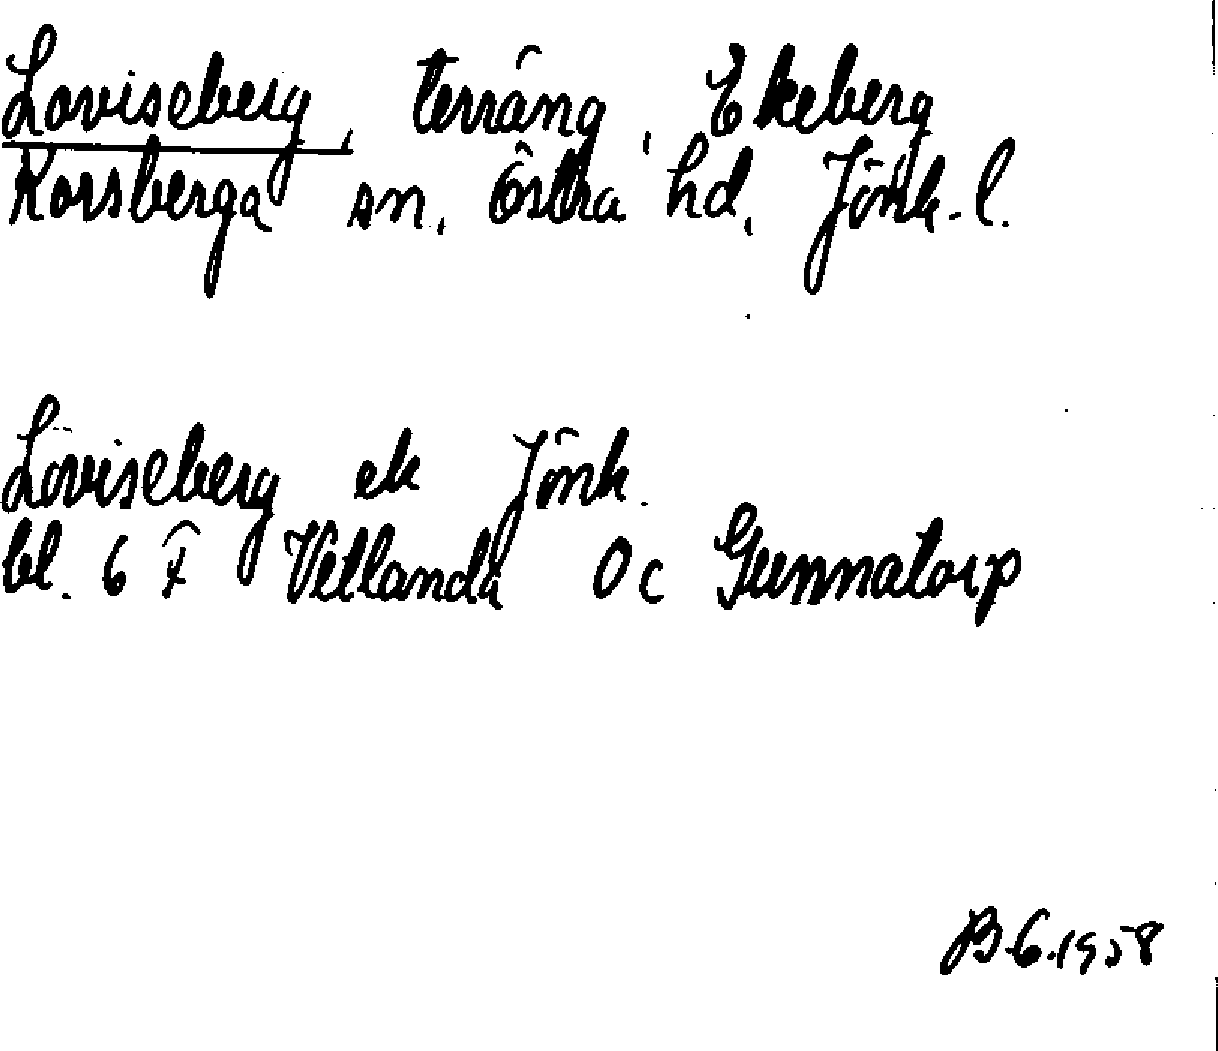 Loviseberg, terräng, Ekeberg
Korsberga sn, Östra hd, Jönk.l.
Loviseberg ek Jönk.
bl. 6 F Vetlanda Oc Gunnatorp
B.G.1958